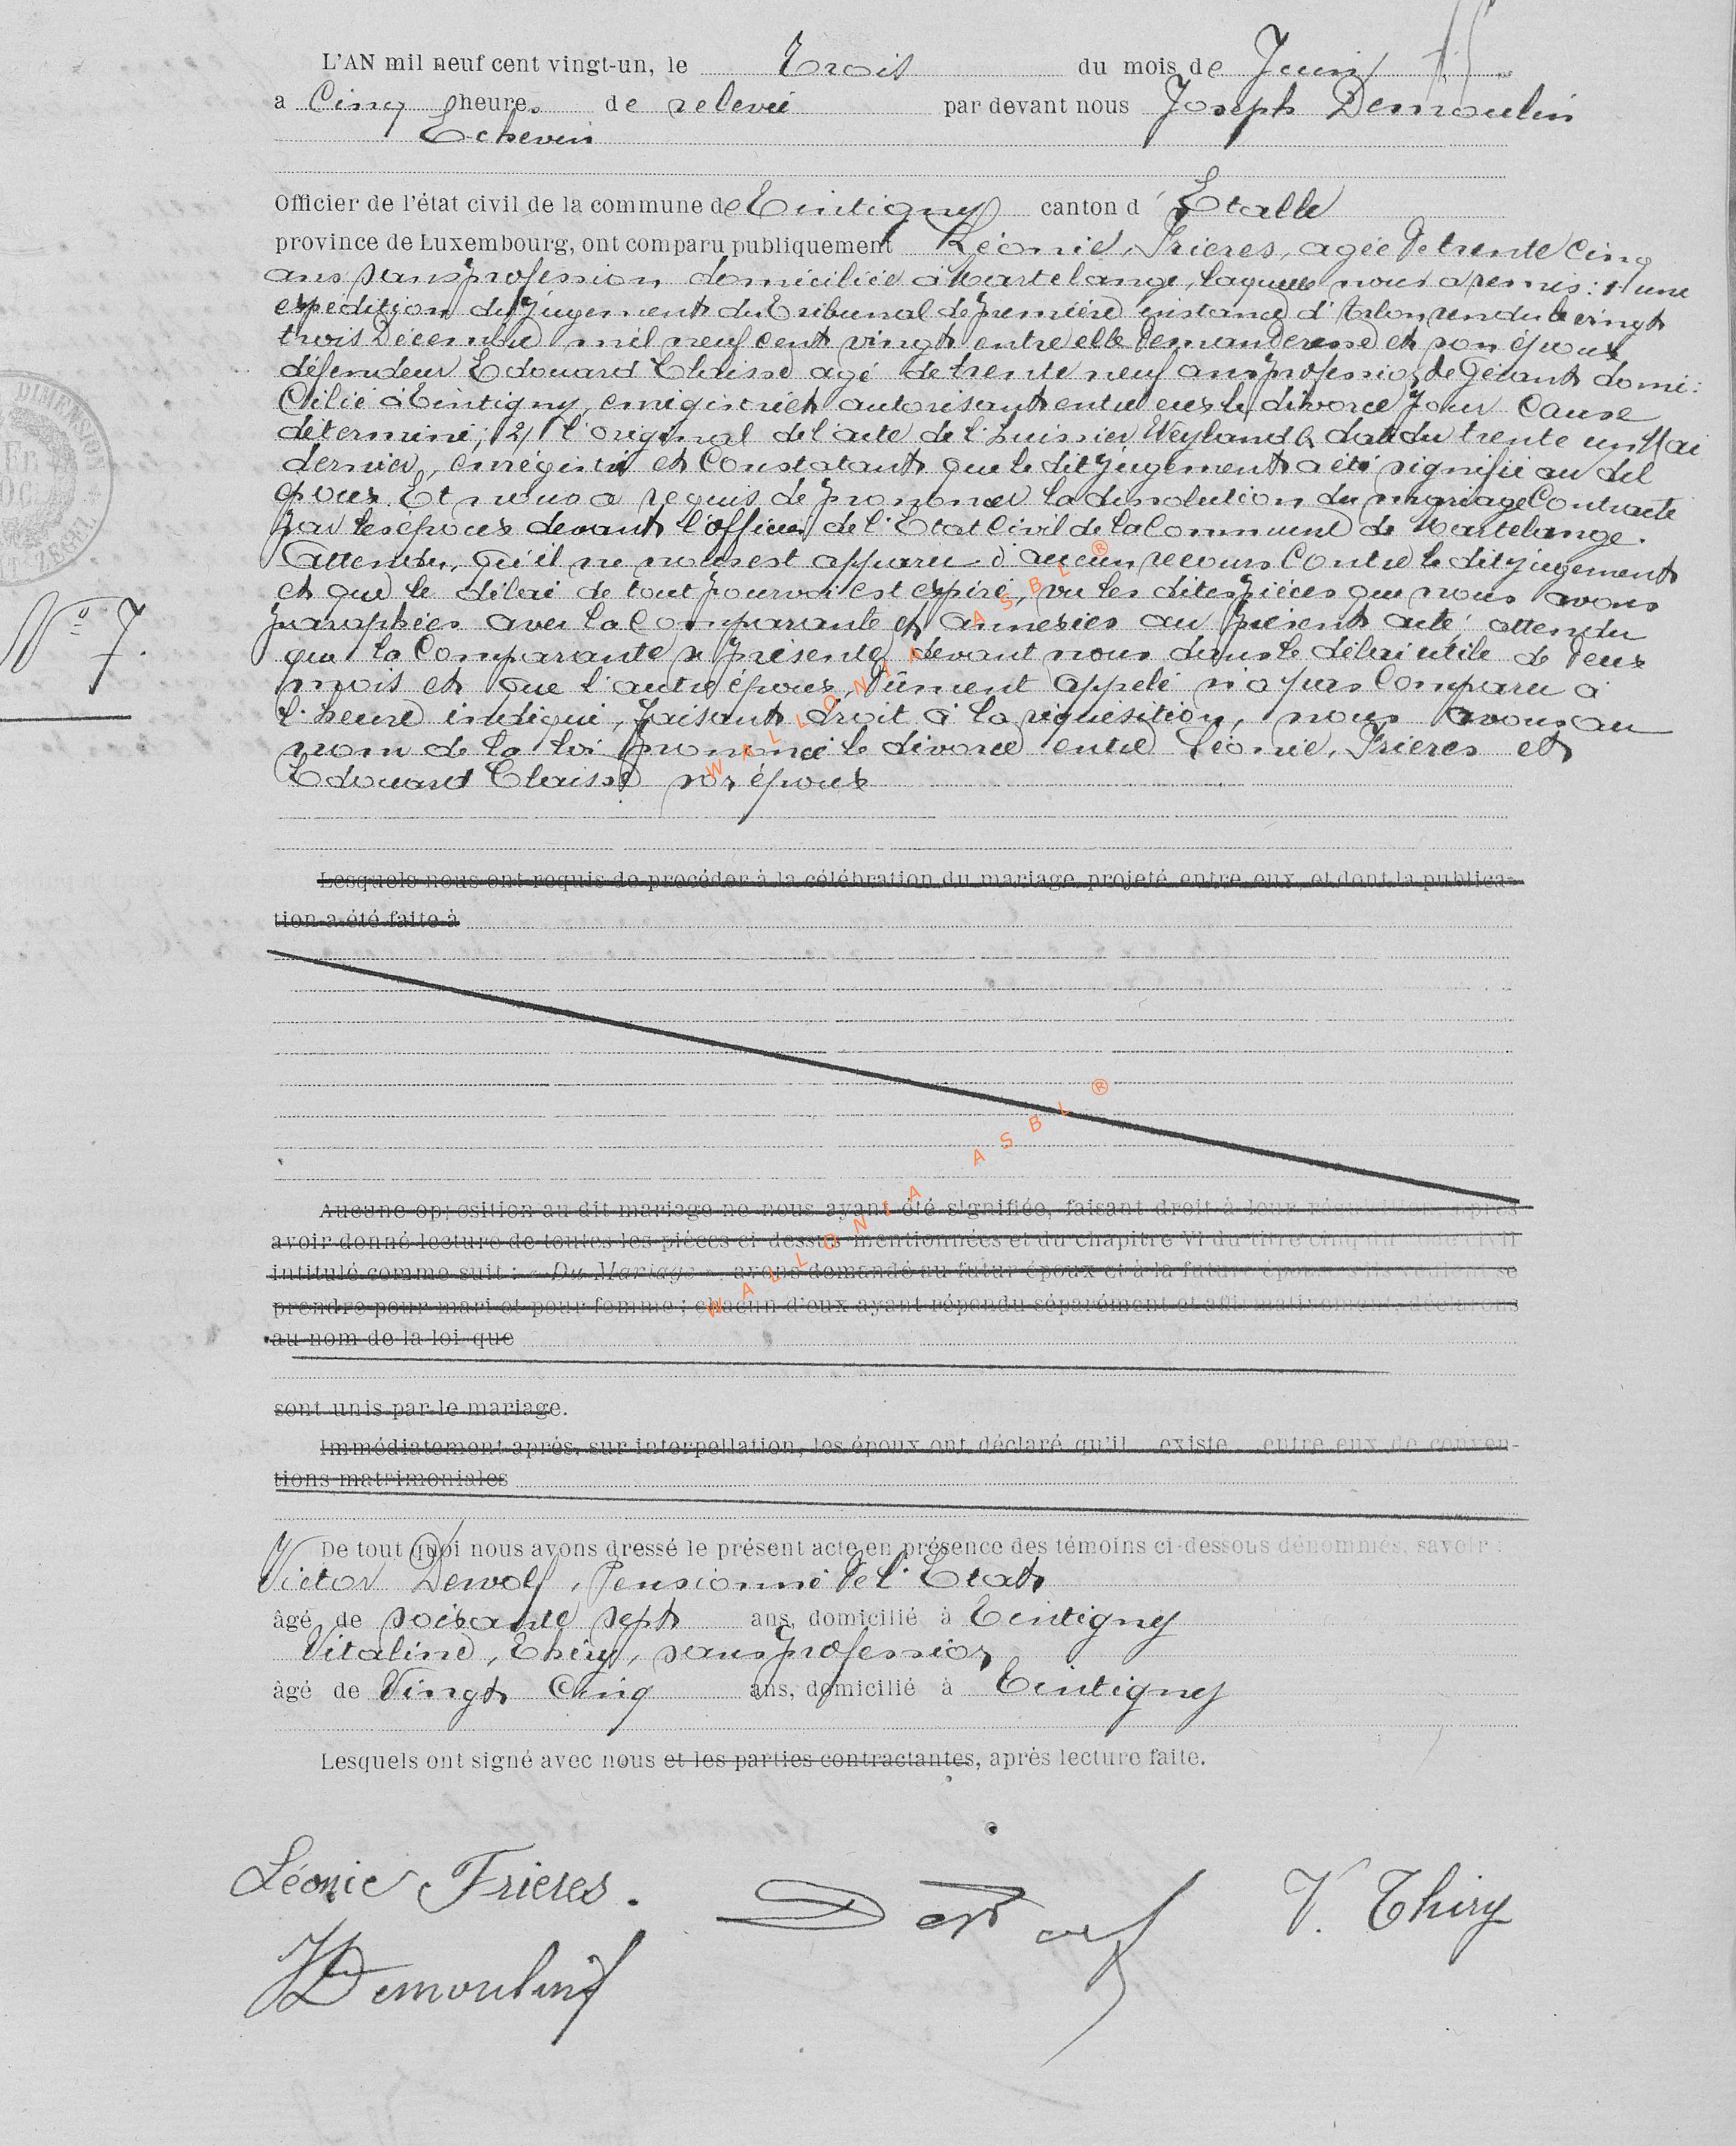 L'AN mil neuf cent vingt-un, le Trois du mois de Juin
a Cinq heures de relevée par devant nous Joseph Demoulin
Echevin
Officier de l'état civil de la commune de Tintigny canton d' Etalle
province de Luxembourg, ont comparu publiquement Léonie, Frieres, agée de trente cinq
ans sans profession domiciliée à Martelange, laquelle nous a remis: 1° une
expédition du jugement du Tribunal de première instance d'Arlon rendu le vingt
trois Décembre mil neuf cent vingt entre elle demanderesse et son époux
défendeur Edouard Claisse agé de trente neuf ans profession de Gérant domi:
Cilié à Tintigny, enrégistré et autorisant entre eux le divorce pour Cause
déterminé; 2/ l'original de l'acte de l'huissier Weyland daté du trente un Mai
dernier, enrégistré et Constatant que le dit jugement a été signifié au dit
époux. Et nous a requis de prononcer la dissolution du mariage Contracté
par les époux devant l'officier de l'Etat Civil de la Commune de Martelange.
Attendu, qu'il ne nous est apparu d'aucun recours Contre le dit jugement
et que le délai de tout pourvoi est expiré, vu les dites pièces que nous avons
paraphées avec la Comparante et annexées au présent acte: attendu
que la Comparante se présente devant nous dans le délai utile de deux
mois et que l'autre époux, dûment appelé n'a pas Comparu à
l'heure indiqué, faisant droit à la réquisition, nous avons au
nom de la loi prononcé le divorce entre Léonie, Frieres et
Edouard Claisse son époux
Lesquels nous ont requis de procéder à la célébration du mariage projeté entre eux, et dont la publica-
tion a été faite à
Aucune opposition au dit mariage ne nous ayant été signifiée, faisant droit à leur réquisition, après
avoir donné lecture de toutes les pièces ci-dessus mentionnées et du chapitre VI du titre cinq du code civil
intitulé comme suit: « Du Mariage », avons demandé au futur époux et à la future épouse s'ils veulent se
prendre pour mari et pour femme; chacun d'eux ayant répondu séparément et affirmativement, déclarons
au nom de la loi que
sont unis par le mariage.
Immédiatement après, sur interpellation, les époux ont déclaré qu'il existe entre eux de conven-
tions matrimoniales
De tout quoi nous avons dressé le présent acte en présence des témoins ci-dessous dénommés, savoir:
Victor Dewolf, Pensionné de l'Etat
âgé de soixante sept ans, domicilié à Tintigny
Vitaline, Thiry, sans profession
âgé de Vingt Cinq ans, domicilié à Tintigny
Lesquels ont signé avec nous et les parties contractantes, après lecture faite.
Léonie Frieres. Dewolf V. Thiry
J Demoulin
N° 7.
DIMENSION
WALLONIA ASBL ®
WALLONIA ASBL ®